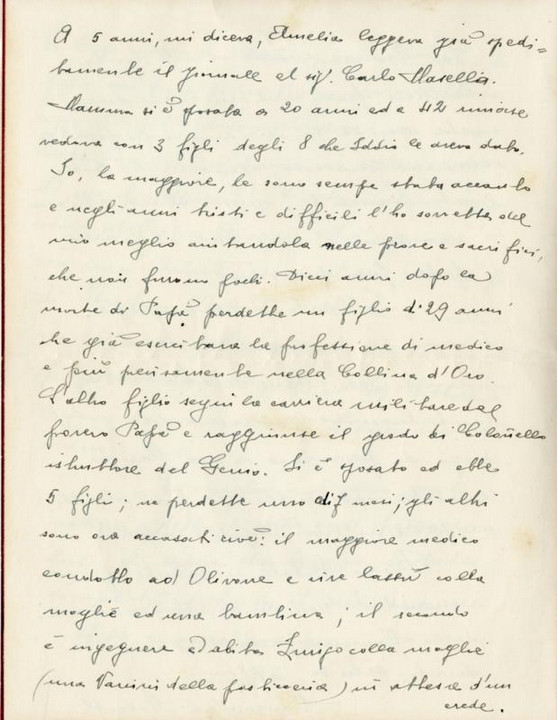 A 5 anni, mi diceva, Amelia leggeva già spedi=
tamente il giornale al sig. Carlo Masella.
Mamma si è sposata a 20 anni ed a 42 rimase
vedova con 3 figli degli 8 che Iddio le aveva dato.
Io, la maggiore, le sono sempre stata accanto
e negli anni tristi e difficili l'ho sorretta del
mio meglio aiutandola nelle prove e sacrifici,
che non furono pochi. Dieci anni dopo la
morte di Papà perdette un figlio di 29 anni
che già esercitava la professione di medico
e più precisamente nella Collina d'Oro.
L'altro figlio seguì la carriera militare del
povero Papà e raggiunse il grado di Colonnello
istruttore del Genio. Si è sposato ed ebbe
5 figli; ne perdette uno di 7 mesi; gli altri
sono ora accasati cioè: il maggiore medico
condotto ad Olivone e vive lassù colla
moglie ed una bambina; il secondo
è ingegnere ed abita Zurigo colla moglie
(una Vanini della pasticceria) in attesa d'un
erede.